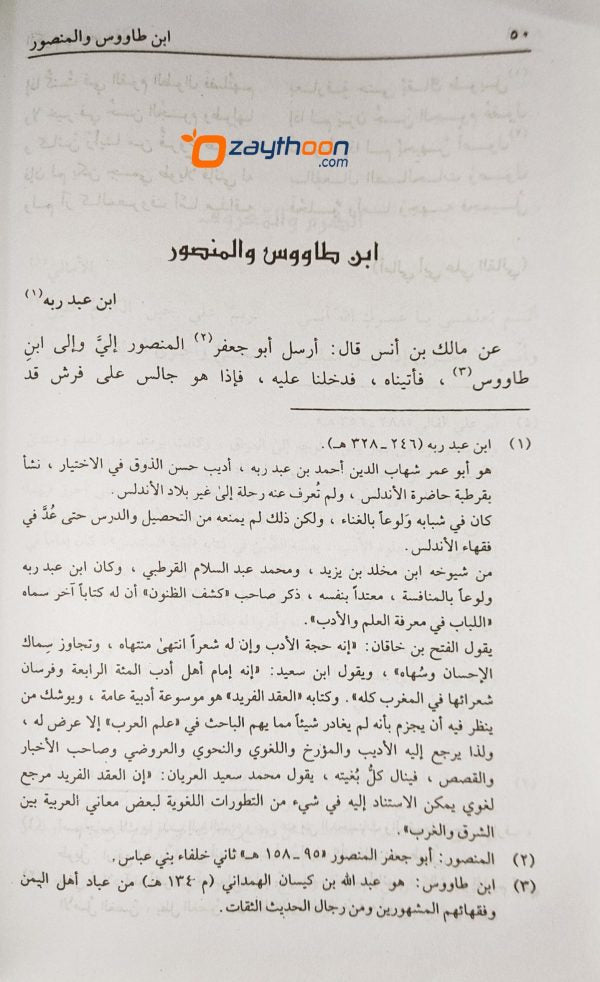 ٥٠ ابن طاووس والمنصور
zaythoon
.com
ابن طاووس والمنصور
ابن عبد ربه (١)
عن مالك بن أنس قال: أرسل أبو جعفر(٢) المنصور إليَّ وإلى ابنِ
طاووس(٣) ، فأتيناه ، فدخلنا عليه ، فإذا هو جالس على فرش قد
(١) ابن عبد ربه (٢٤٦ ـ ٣٢٨ هـ).
هو أبو عمر شهاب الدين أحمد بن عبد ربه ، أديب حسن الذوق في الاختيار ، نشأ
بقرطبة حاضرة الأندلس ، ولم تُعرف عنه رحلة إلىٰ غير بلاد الأندلس.
كان في شبابه وَلوعاً بالغناء ، ولكن ذلك لم يمنعه من التحصيل والدرس حتى عُدَّ في
فقهاء الأندلس.
من شيوخه ابن مخلد بن يزيد ، ومحمد عبد السلام القرطبي ، وكان ابن عبد ربه
ولوعاً بالمنافسة ، معتداً بنفسه ، ذكر صاحب «كشف الظنون» أن له كتاباً آخر سماه
«اللباب في معرفة العلم والأدب».
يقول الفتح بن خاقان: «إنه حجة الأدب وإن له شعراً انتهىٰ منتهاه ، وتجاوز سِماك
الإحسان وسُهاه» ، ويقول ابن سعيد: «إنه إمام أهل أدب المئة الرابعة وفرسان
شعرائها في المغرب كله». وكتابه «العقد الفريد» هو موسوعة أدبية عامة ، ويوشك من
ينظر فيه أن يجزم بأنه لم يغادر شيئاً مما يهم الباحث في «علم العرب» إلا عرض له ،
ولذا يرجع إليه الأديب والمؤرخ واللغوي والنحوي والعروضي وصاحب الأخبار
والقصص ، فينال كلٌّ بُغيته ، يقول محمد سعيد العريان: «إن العقد الفريد مرجع
لغوي يمكن الاستناد إليه في شيء من التطورات اللغوية لبعض معاني العربية بين
الشرق والغرب».
(٢) المنصور: أبو جعفر المنصور «٩٥ ـ ١٥٨ هـ» ثاني خلفاء بني عباس.
(٣) ابن طاووس: هو عبد الله بن كيسان الهمداني (م ١٣٤ هـ) من عباد أهل اليمن
وفقهائهم المشهورين ومن رجال الحديث الثقات.